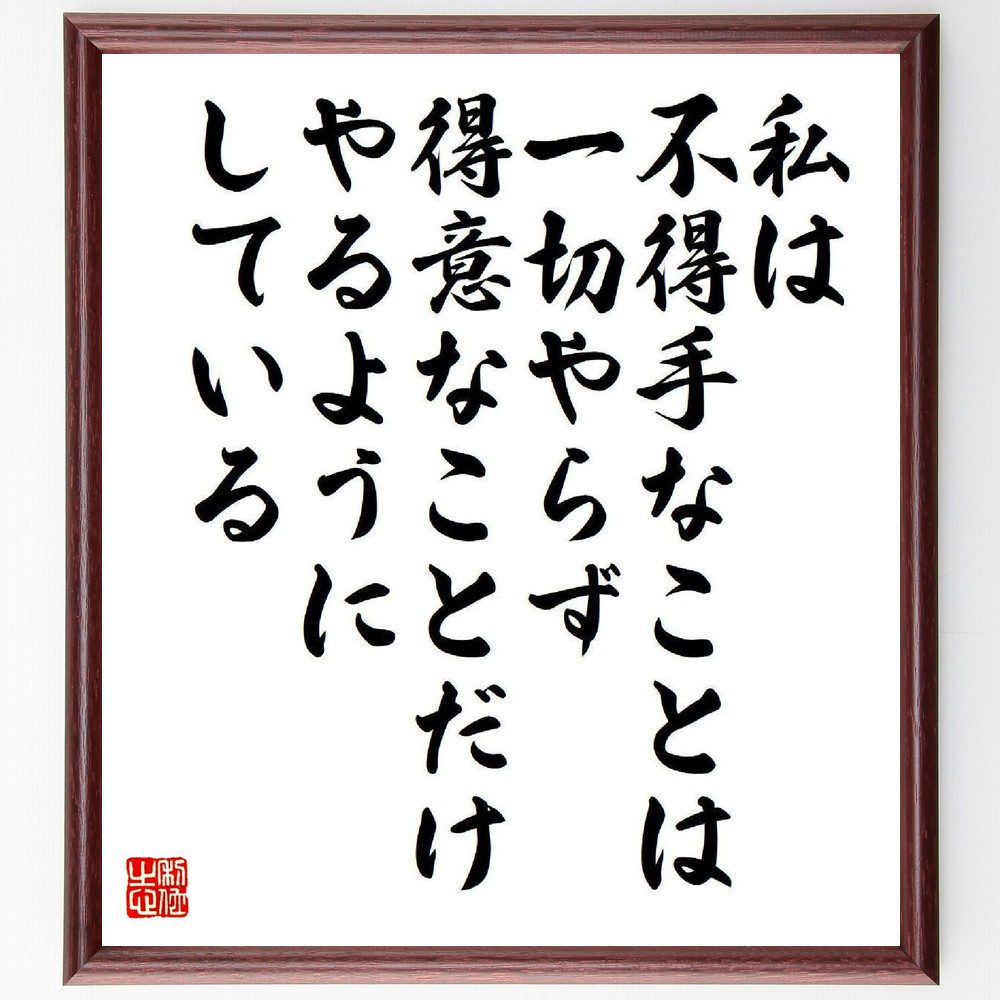 私は
不得手なことは
一切やらず
得意なことだけ
やるように
している